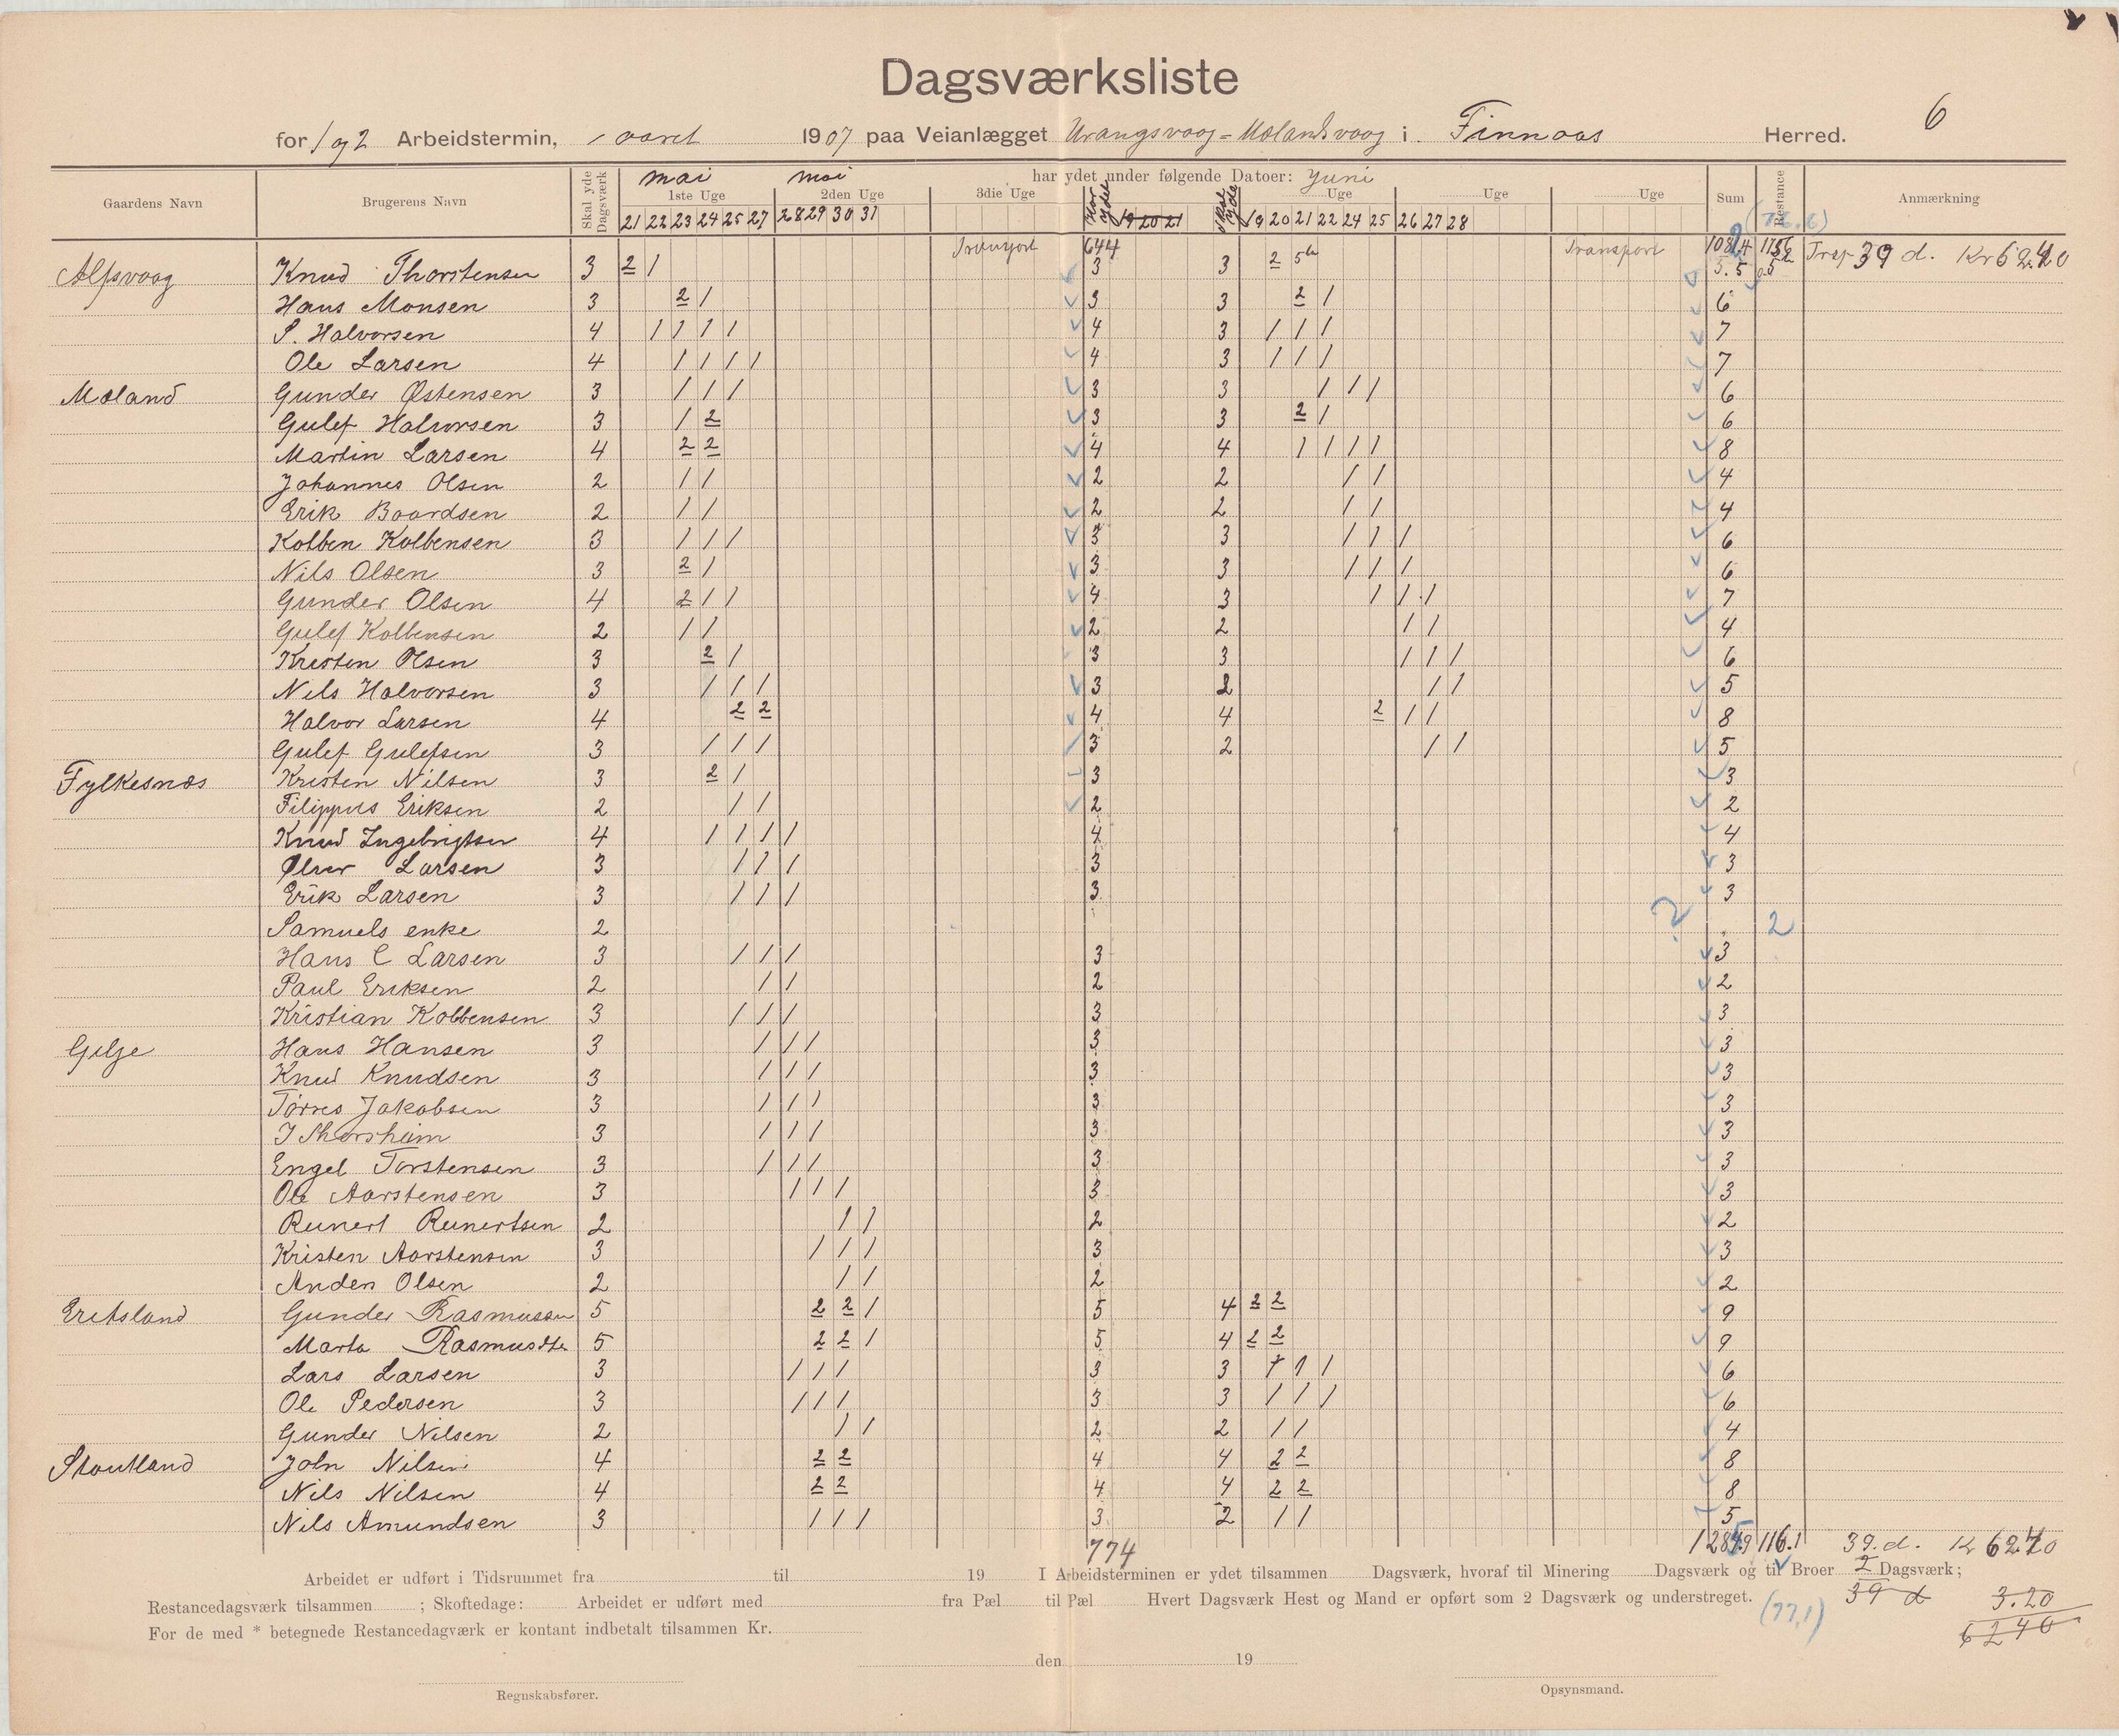 6
Dagsværksliste
for 1 og 2 Arbeidstermin, i aaret 1907 paa Veianlægget Urangsvaag - Mælandsvaag i Finnaas Herred.
Gaardens Navn Brugerens Navn Skal yde Dagsværk har ydet under følgende Datoer: Sum Restance Anmærkning
mai mai Juni
1ste Uge 2den Uge 3die Uge Har ydet Skal yde Uge Uge Uge
21 22 23 24 25 27 28 29 30 31 19 20 21 19 20 21 22 24 25 26 27 28
Transport 644 Transport Trsp 39 d. Kr 62.40
Alfsvaag Knud Thorstensen 3 2 1 3 3 2 5 5.5 0.5
Hans Monsen 3 2 1 3 3 2 1 6
S. Halvorsen 4 1 1 1 1 4 3 1 1 1 7
Ole Larsen 4 1 1 1 1 4 3 1 1 1 7
Mæland Gunder Østensen 3 1 1 1 3 3 1 1 1 6
Gulef Halvorsen 3 1 2 3 3 2 1 6
Martin Larsen 4 2 2 4 4 1 1 1 1 8
Johannes Olsen 2 1 1 2 2 1 1 4
Erik Baardsen 2 1 1 2 2 1 1 4
Kolben Kolbensen 3 1 1 1 3 3 1 1 1 6
Nils Olsen 3 2 1 3 3 1 1 1 6
Gunder Olsen 4 2 1 1 4 3 1 1 1 7
Gulef Kolbensen 2 1 1 2 2 1 1 4
Kristen Olsen 3 2 1 3 3 1 1 1 6
Nils Halvorsen 3 1 1 1 3 2 1 1 5
Halvor Larsen 4 2 2 4 4 2 1 1 8
Gulef Gulefsen 3 1 1 1 3 2 1 1 5
Fylkesnæs Kristen Nilsen 3 2 1 3 3
Filippus Eriksen 2 1 1 2 2
Knud Ingebrigtsen 4 1 1 1 1 4 4
Ølver Larsen 3 1 1 1 3 3
Erik Larsen 3 1 1 1 3 3
Samuels enke 2 ? 2
Hans C Larsen 3 1 1 1 3 3
Paul Eriksen 2 1 1 2 2
Kristian Kolbensen 3 1 1 1 3 3
Gilje Hans Hansen 3 1 1 1 3 3
Knud Knudsen 3 1 1 1 3 3
Tørres Jakobsen 3 1 1 1 3 3
J Thorsheim 3 1 1 1 3 3
Engel Torstensen 3 1 1 1 3 3
Ole Aorstensen 3 1 1 1 3 3
Reinert Reinertsen 2 1 1 2 2
Kristen Aorstensen 3 1 1 1 3 3
Anden Olsen 2 1 1 2 2
Eriksland Gunder Rasmussen 5 2 2 1 5 4 2 2 9
Marta Rasmusdtr 5 2 2 1 5 4 2 2 9
Lars Larsen 3 1 1 1 3 3 1 1 1 6
Ole Pedersen 3 1 1 1 3 3 1 1 1 6
Gunder Nilsen 2 1 1 2 2 1 1 4
Stoutland John Nilsen 4 2 2 4 4 2 2 8
Nils Nilsen 4 2 2 4 4 2 2 8
Nils Amundsen 3 1 1 1 3 2 1 1 5
774 116.1 39. d. Kr 62.40
Arbeidet er udført i Tidsrummet fra til 19 I Arbeidsterminen er ydet tilsammen Dagsværk, hvoraf til Minering Dagsværk og til Broer 2 Dagsværk;
Restancedagsværk tilsammen ; Skoftedage: Arbeidet er udført med fra Pæl til Pæl Hvert Dagsværk Hest og Mand er opført som 2 Dagsværk og understreget. 39 d 3.20
For de med * betegnede Restancedagværk er kontant indbetalt tilsammen Kr. (77,1) 62 40
den 19
Regnskabsfører. Opsynsmand.